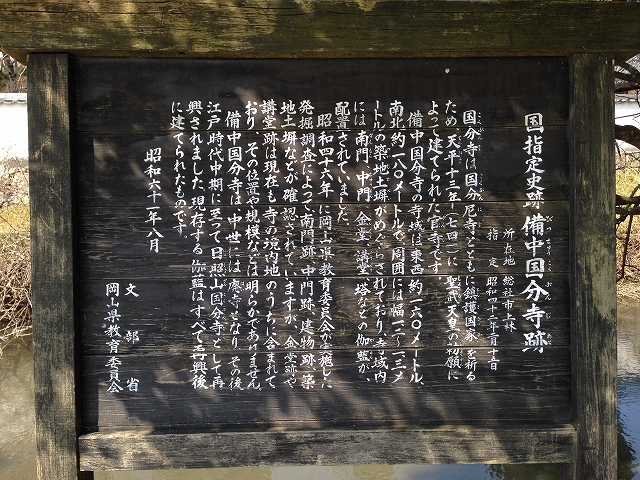 国指定史跡 備中国分寺跡
びっちゅうこくぶんじ
所在地 総社市上林
指定 昭和四十三年二月十五日
国分寺は国分尼寺とともに鎮護国家を祈る
ため、天平十三年(七四一)に聖武天皇の勅願に
よって建てられた官寺です。
備中国分寺の寺域は東西約一六〇メートル、
南北約一八〇メートルで、周囲には幅一・二〜一・三メ
ートルの築地土塀がめぐらされており、寺域内
には、南門、中門、金堂、講堂、塔などの伽藍が、
配置されていました。
昭和四十六年に岡山県教育委員会が実施した
発掘調査によって、南門跡、中門跡、建物跡、築
地土塀などが確認されていますが、金堂跡や
講堂跡は現在も寺の境内地のうちに含まれて
おり、その位置や規模などは明らかでありません。
備中国分寺は、中世には廃寺となり、その後、
江戸時代中期に至って日照山国分寺として再
興されました。現存する伽藍はすべて再興後
に建てられたものです。
昭和六十一年八月
文部省
岡山県教育委員会